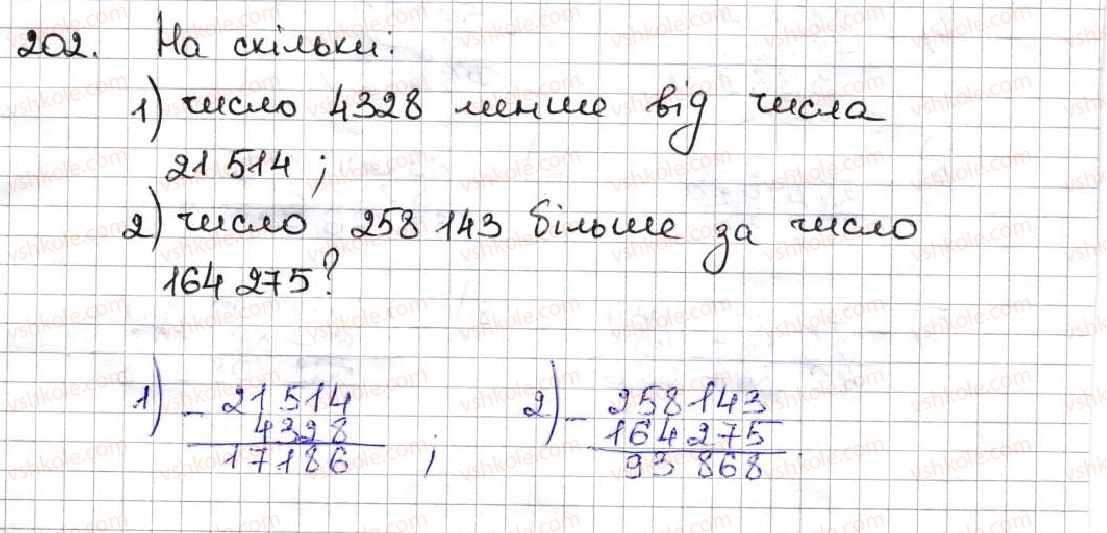 202. На скільки:
1) число 4328 менше від числа
21 514 ;
2) число 258 143 більше за число
164 275?
1) - 21 514
4328
17186 ;
2) - 258 143
164 275
93 868 .